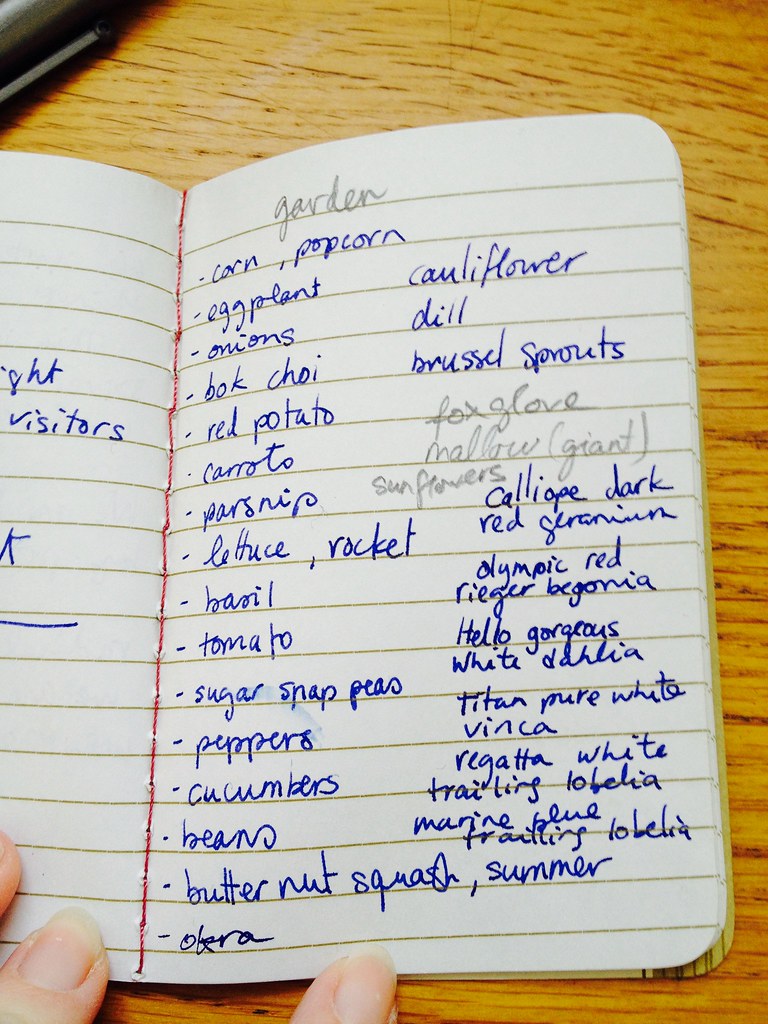 ight
visitors
garden
- corn , popcorn
- eggplant
- onions
- bok choi
- red potato
- carrots
- parsnip
- lettuce , rocket
- basil
- tomato
- sugar snap peas
- peppers
- cucumbers
- beans
- butter nut squash , summer
- okra
cauliflower
dill
brussel sprouts
foxglove
mallow (giant)
sunflowers
Calliope dark
red geranium
olympic red
rieger begonia
Hello gorgeous
white dahlia
Titan pure white
vinca
regatta white
trailing lobelia
marine blue
trailling lobelia